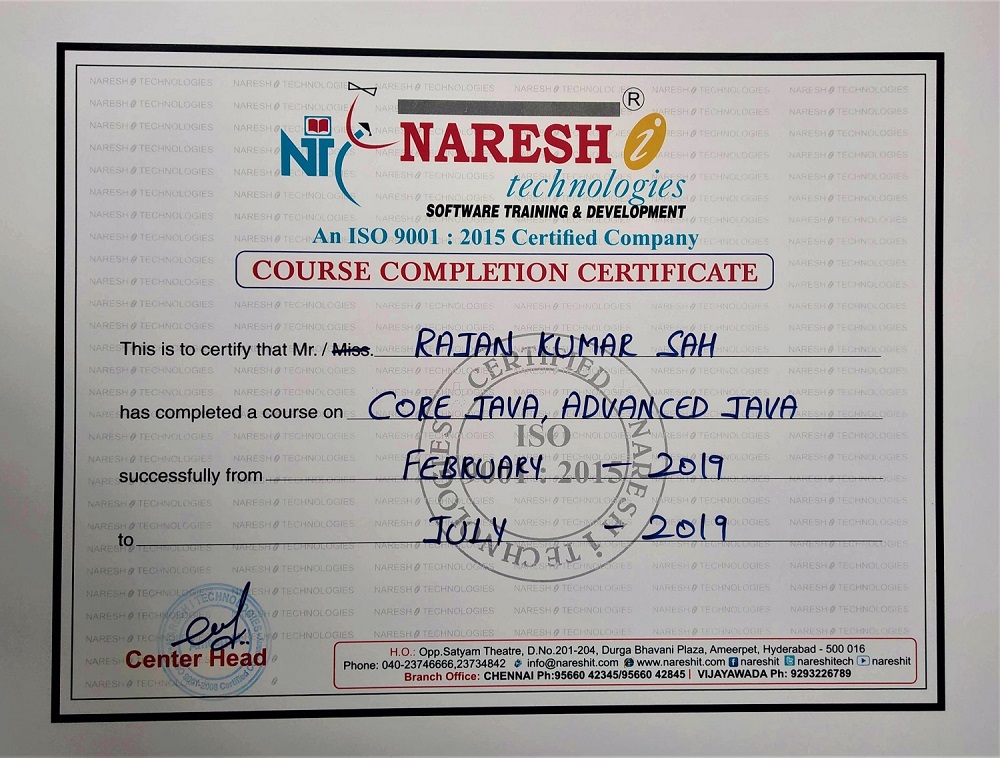 NT
NARESH i ®
technologies
SOFTWARE TRAINING & DEVELOPMENT
An ISO 9001 : 2015 Certified Company
COURSE COMPLETION CERTIFICATE
This is to certify that Mr. / Miss. RAJAN KUMAR SAH
has completed a course on CORE JAVA, ADVANCED JAVA
successfully from FEBRUARY - 2019
to JULY - 2019
CERTIFIED
ISO
9001 : 2015
NARESH i TECHNOLOGIES
Center Head
H.O.: Opp.Satyam Theatre, D.No.201-204, Durga Bhavani Plaza, Ameerpet, Hyderabad - 500 016
Phone: 040-23746666,23734842 info@nareshit.com www.nareshit.com nareshit nareshitech nareshit
Branch Office: CHENNAI Ph:95660 42345/95660 42845 | VIJAYAWADA Ph: 9293226789